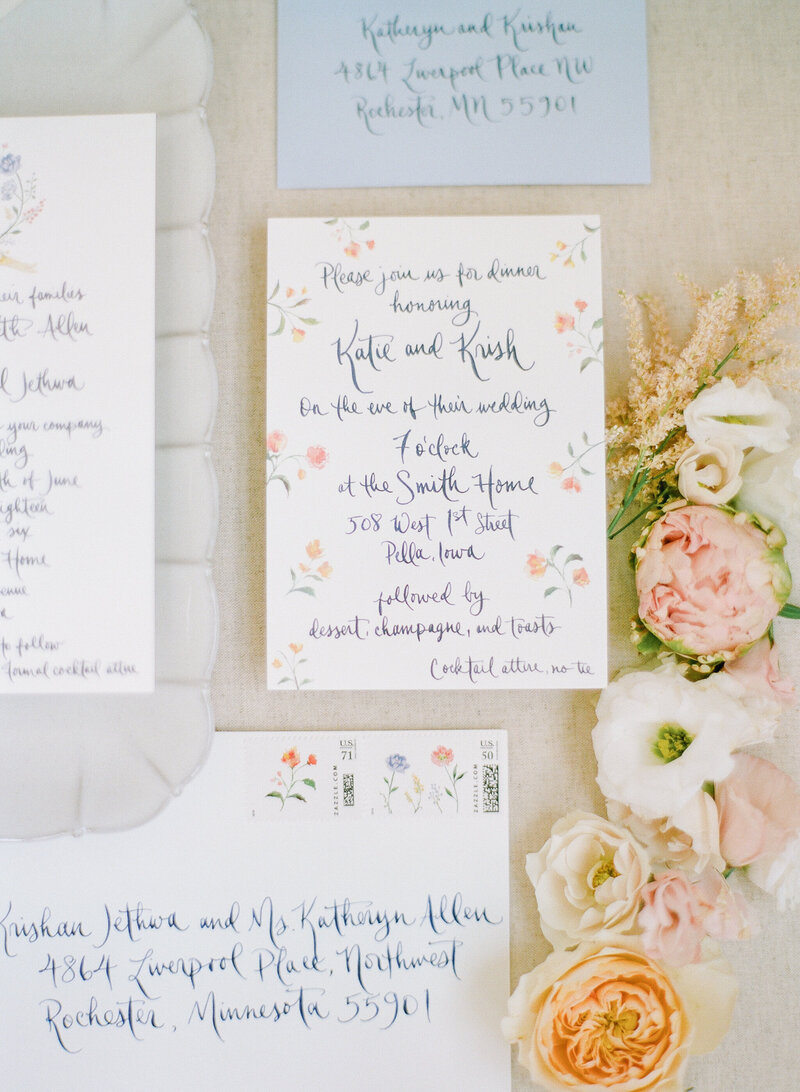 Katheryn and Krishan
4864 Liverpool Place NW
Rochester, MN 55901
their families
Allen
Jethwa
your company
of June
eighteen
six
Home
to follow
Formal cocktail attire
Please join us for dinner
honoring
Katie and Krish
On the eve of their wedding
7 o'clock
at the Smith Home
508 West 1st Street
Pella, Iowa
followed by
dessert, champagne, and toasts
Cocktail attire, no tie
U.S.
71
ZAZZLE.COM
U.S.
50
ZAZZLE.COM
Krishan Jethwa and Ms. Katheryn Allen
4864 Liverpool Place, Northwest
Rochester, Minnesota 55901